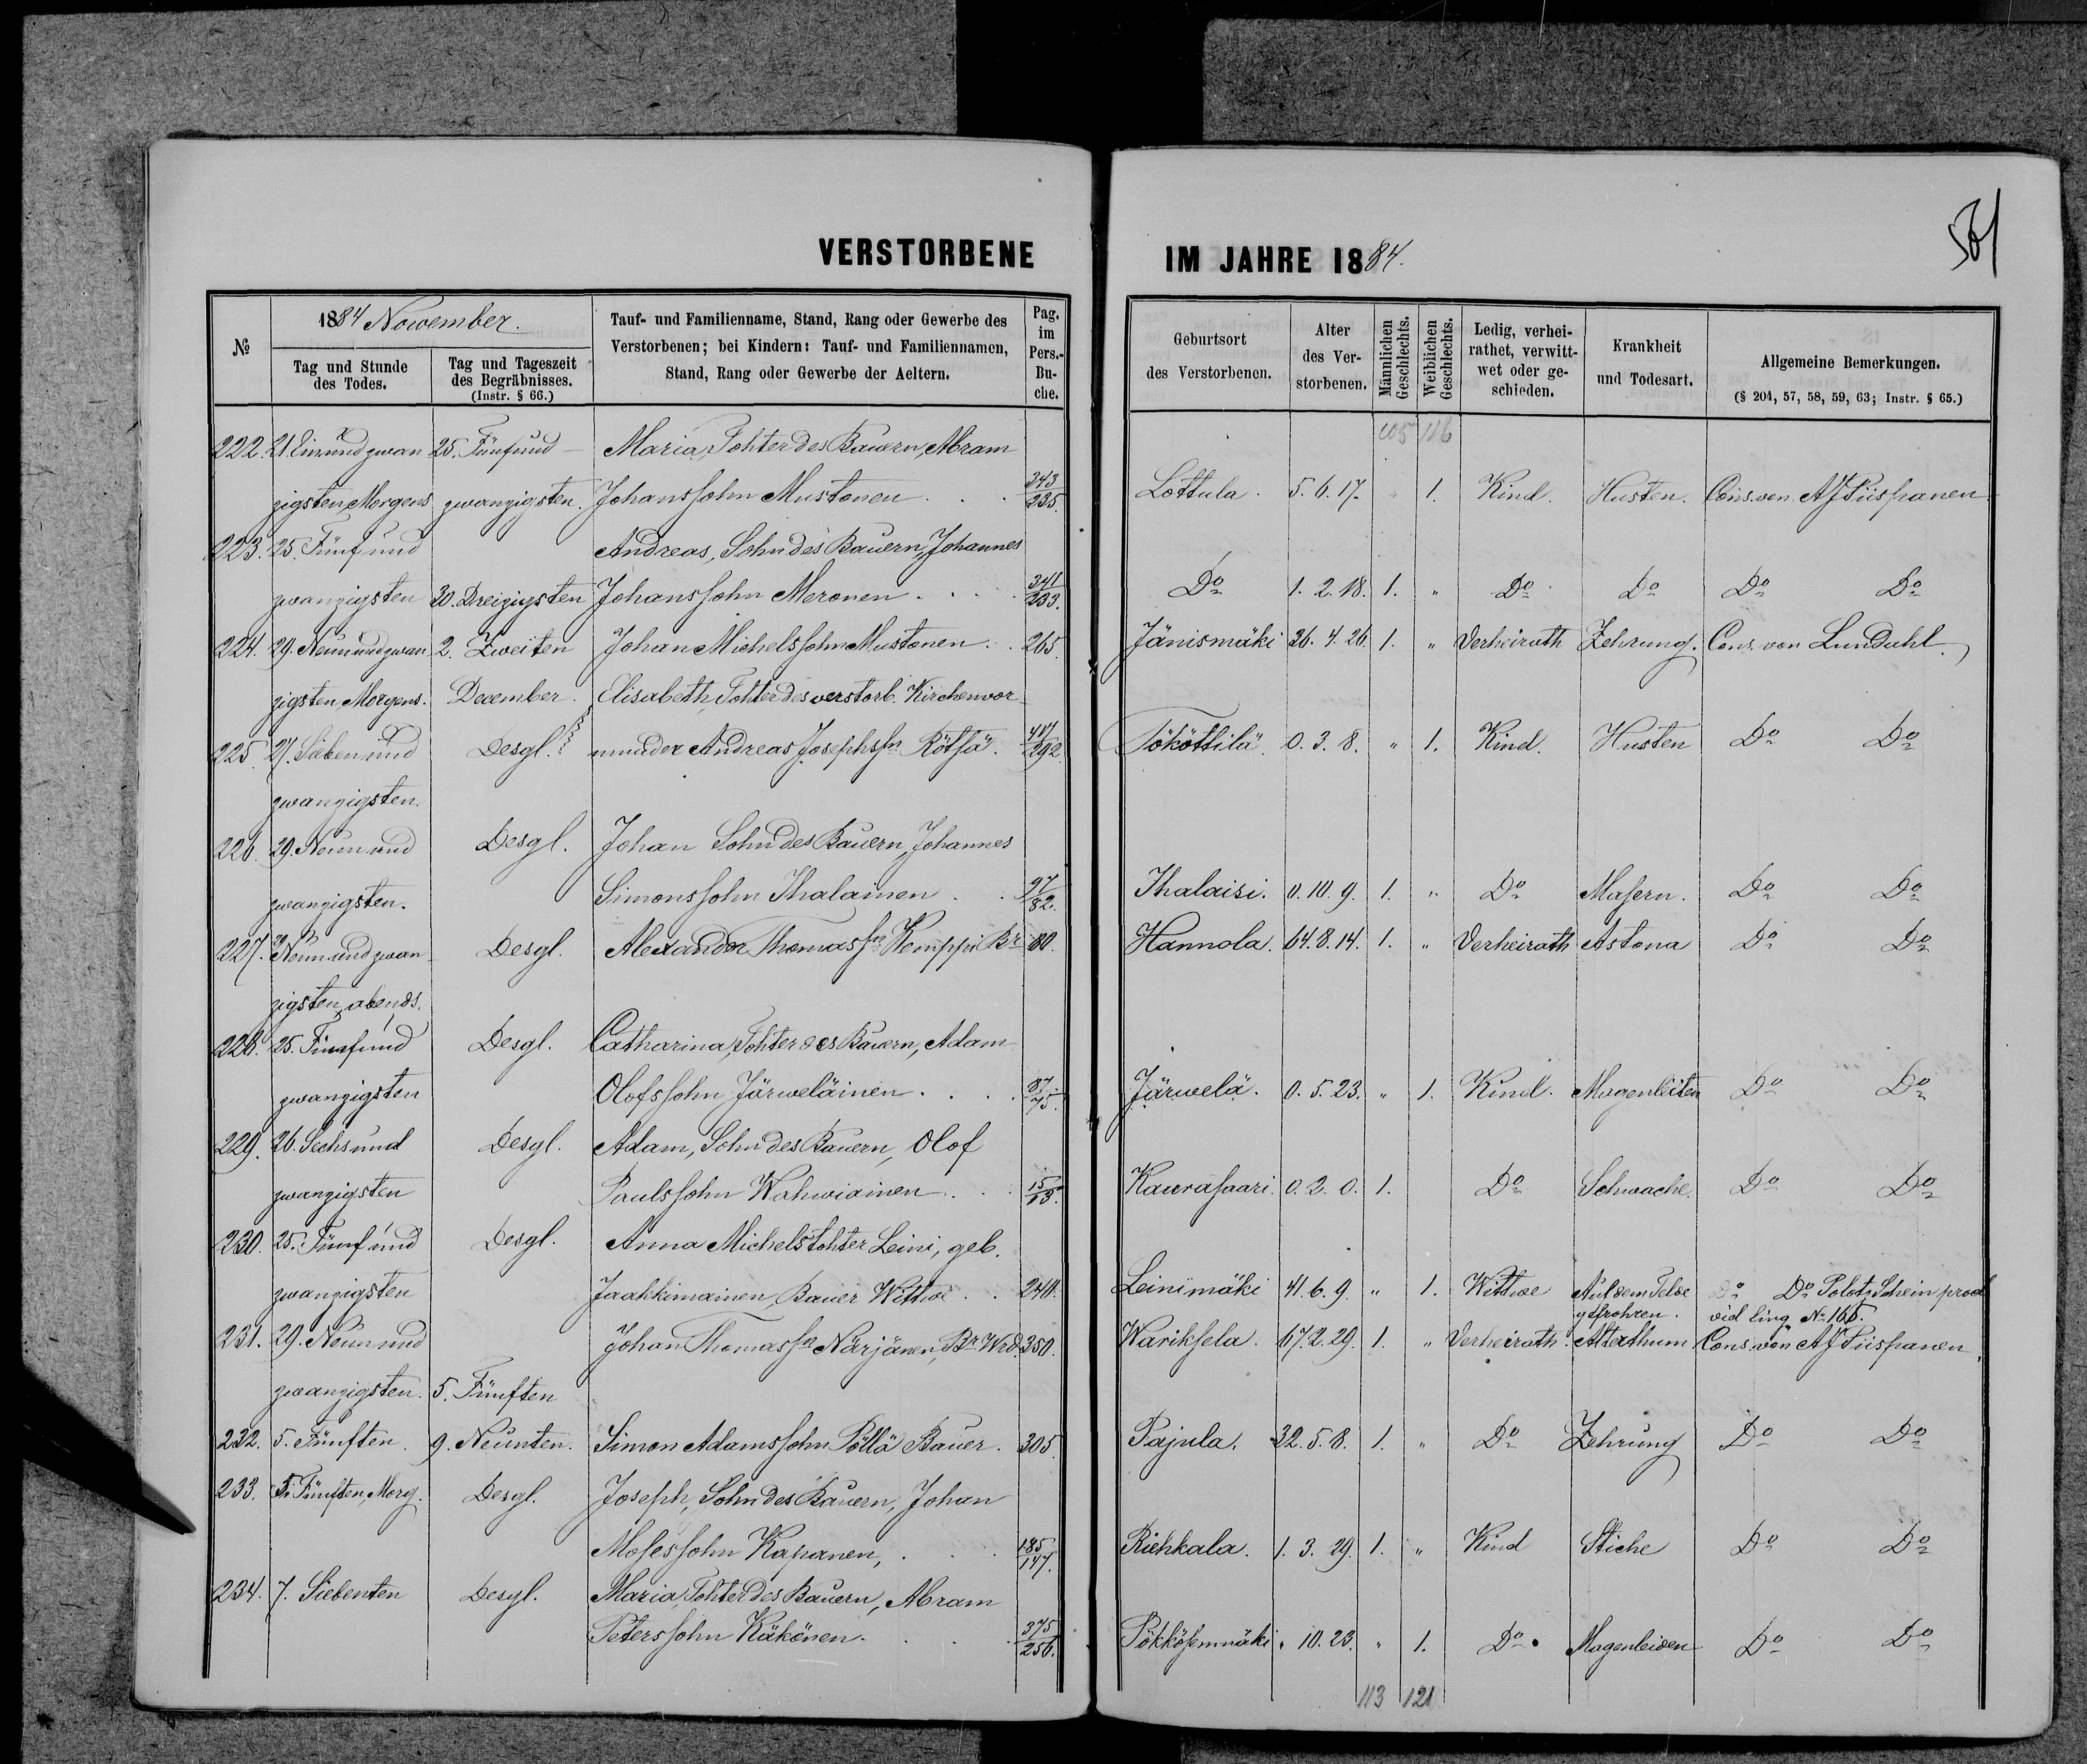 VERSTORBENE
IM JAHRE 1884.
№
1884 November.
Tag und Stunde des Todes.
Tag und Tageszeit des Begräbnisses. (Instr. § 66.)
Tauf- und Familienname, Stand, Rang oder Gewerbe des Verstorbenen; bei Kindern: Tauf- und Familiennamen, Stand, Rang oder Gewerbe der Aeltern.
Pag. im Pers.-Buche.
Geburtsort des Verstorbenen.
Alter des Verstorbenen.
Männlichen Geschlechts.
Weiblichen Geschlechts.
Ledig, verheirathet, verwittwet oder geschieden.
Krankheit und Todesart.
Allgemeine Bemerkungen.
(§ 204, 57, 58, 59, 63; Instr. § 65.)
105 116
222. 21. Einundzwan 25. Fünfund- Maria, Tohter des Bauern, Abram
zigsten Morgens zwanzigsten. Johanssohn Mustonen . . . 343/235. Lottula. 5. 6. 17. " 1. Kind. Husten. Cons. von AJ Piispanen
223. 25. Fünfund Andreas, Sohn des Bauern, Johannes
zwanzigsten 30. Dreizigsten Johanssohn Meronen . . . 341/233. Do 1. 2. 18. 1. " Do Do Do Do
224. 29. Neunundzwan 2. Zweiten Johan Michelssohn Mustonen . . 265. Jänismäki 36. 4. 26. 1. " Verheirath Zehrung. Cons. von Lundahl.
zigsten, Morgens. December. Elisabeth, Tohter des verstorb. Kirchenvor
225. 27. Sieben und Desgl. munder Andreas Josephssn Rötsä. 417/292. Tököttilä. 0. 3. 8. " 1. Kind. Husten Do Do
zwanzigsten.
226. 29. Neun und Desgl. Johan Sohn des Bauern, Johannes
zwanzigsten. Simonssohn Ihalainen . . 97/82. Ihalaisi. 0. 10. 9. 1. " Do Masern. Do Do
227. 29 Neun und zwan- Desgl. Alexander Thomassn Kemppi Br 80. Hannola. 64. 8. 14. 1. " Verheirath Astona Do Do
zigsten, abends.
228. 25. Fünfund Desgl. Catharina, Tohter des Bauern, Adam
zwanzigsten Olofssohn Järweläinen . . . 87/75. Järwelä. 0. 5. 23. " 1. Kind. Magenleiten Do Do
229. 26. Sechsund Desgl. Adam, Sohn des Bauern, Olof
zwanzigsten Paulssohn Wahwiainen . . . 15/13. Kaurasaari. 0. 2. 0. 1. Do Schwache. Do Do
230. 25. Fünf und Desgl. Anna Michelstohter Leini, geb.
zwanzigsten Jaakkimainen, Bauer Wittwe . . 240. Leinimäki 41. 6. 9. " 1. Wittwe Auf dem Felde Do Do Polotz Schein prod
gefrohren. vid ling № 165.
231. 29. Neun und Johan Thomassn Närjänen, Br Wrd. 350. Wariksela. 67. 2. 29. 1. " Verheirath. Alterthum Cons. von AJ Piispanen
zwanzigsten. 5. Fünften
232. 5. Fünften 9. Neunten. Simon Adamssohn Pöllä Bauer. 305. Pajula. 32. 5. 8. 1. " Do Zehrung Do Do
233. 5. Fünften, Morg. Desgl. Joseph, Sohn des Bauern, Johan
Mosessohn Kapanen, . . . 185/147. Riehkala. 1. 3. 29. 1. " Kind Stiche Do Do
234. 7. Siebenten Desgl. Maria, Tohter des Bauern, Abram
Peterssohn Käkönen. . . . 375/256. Pökkösenmäki " 10. 23. " 1. Do. Magenleiden Do Do
113 121